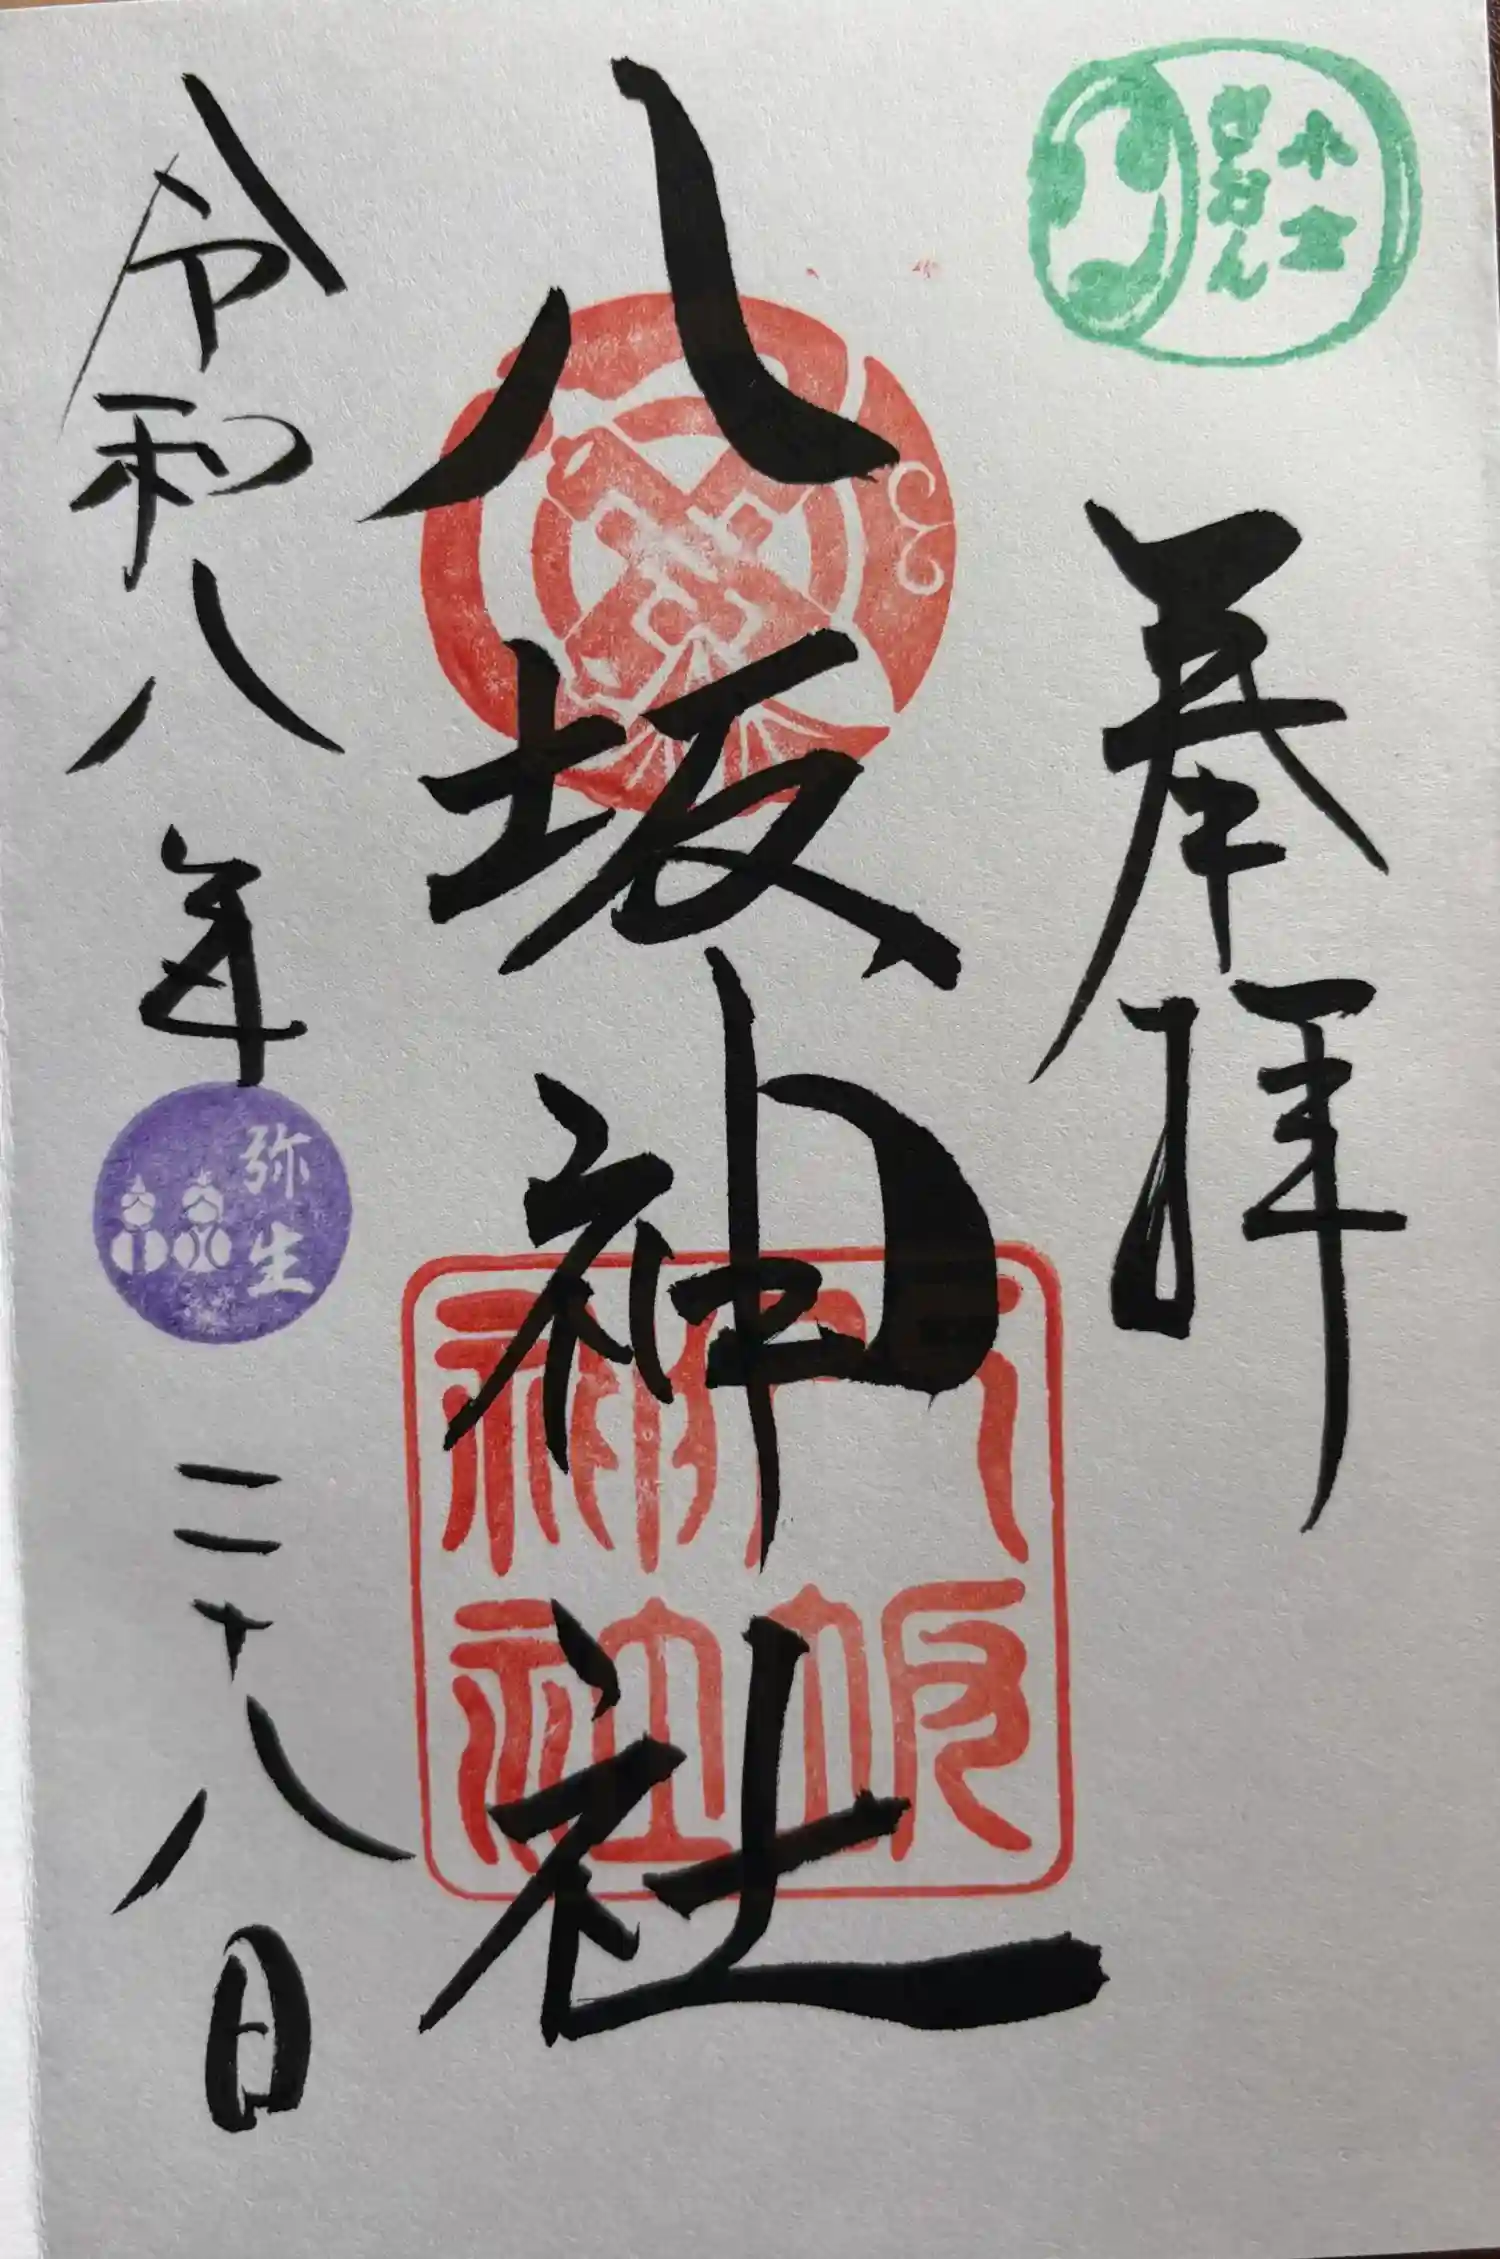 小倉
ぎおん
奉拝
八坂神社
八坂
神社
令和八年
弥生
二十八日